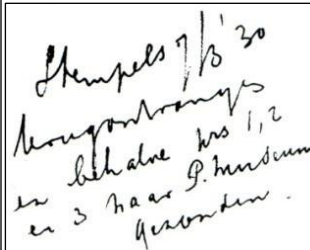 Stempels 7/3 '30
terugontvangen
en behalve nrs 1, 2
en 3 naar P. Museum
gezonden.